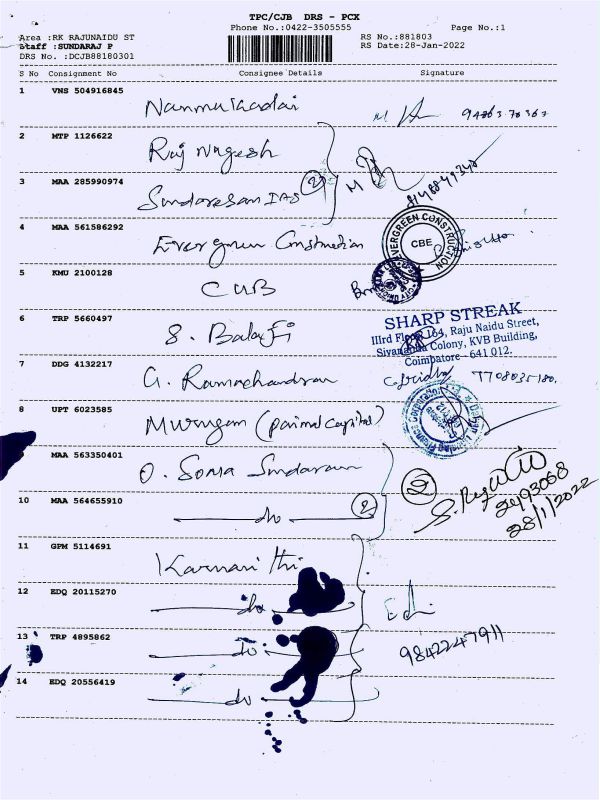 TPC/CJB DRS - PCX
Phone No.:0422-3505555 Page No.:1
Area :RK RAJUNAIDU ST RS No.:881803
Staff :SUNDARAJ P RS Date:28-Jan-2022
DRS No. :DCJB88180301
S No Consignment No Consignee Details Signature
1 VNS 504916845
2 MTP 1126622
Raj Nagesh
3 MAA 285990974
Sundaresan IAS 2
4 MAA 561586292
Evergreen Construction
EVERGREEN CONSTRUCTION
CBE
5 KMU 2100128
CUB
6 TRP 5660497
S. Balaji
SHARP STREAK
IIIrd Floor 164, Raju Naidu Street,
Sivananda Colony, KVB Building,
Coimbatore - 641 012.
7 DDG 4132217
G. Ramachandran
8 UPT 6023585
Murugan (Parimal Capital)
9 MAA 563350401
O. Soma Sundaram
2
10 MAA 564655910
do 2
28/1/2022
11 GPM 5114691
12 EDQ 20115270
do
13 TRP 4895862
do
9842247911
14 EDQ 20556419
do